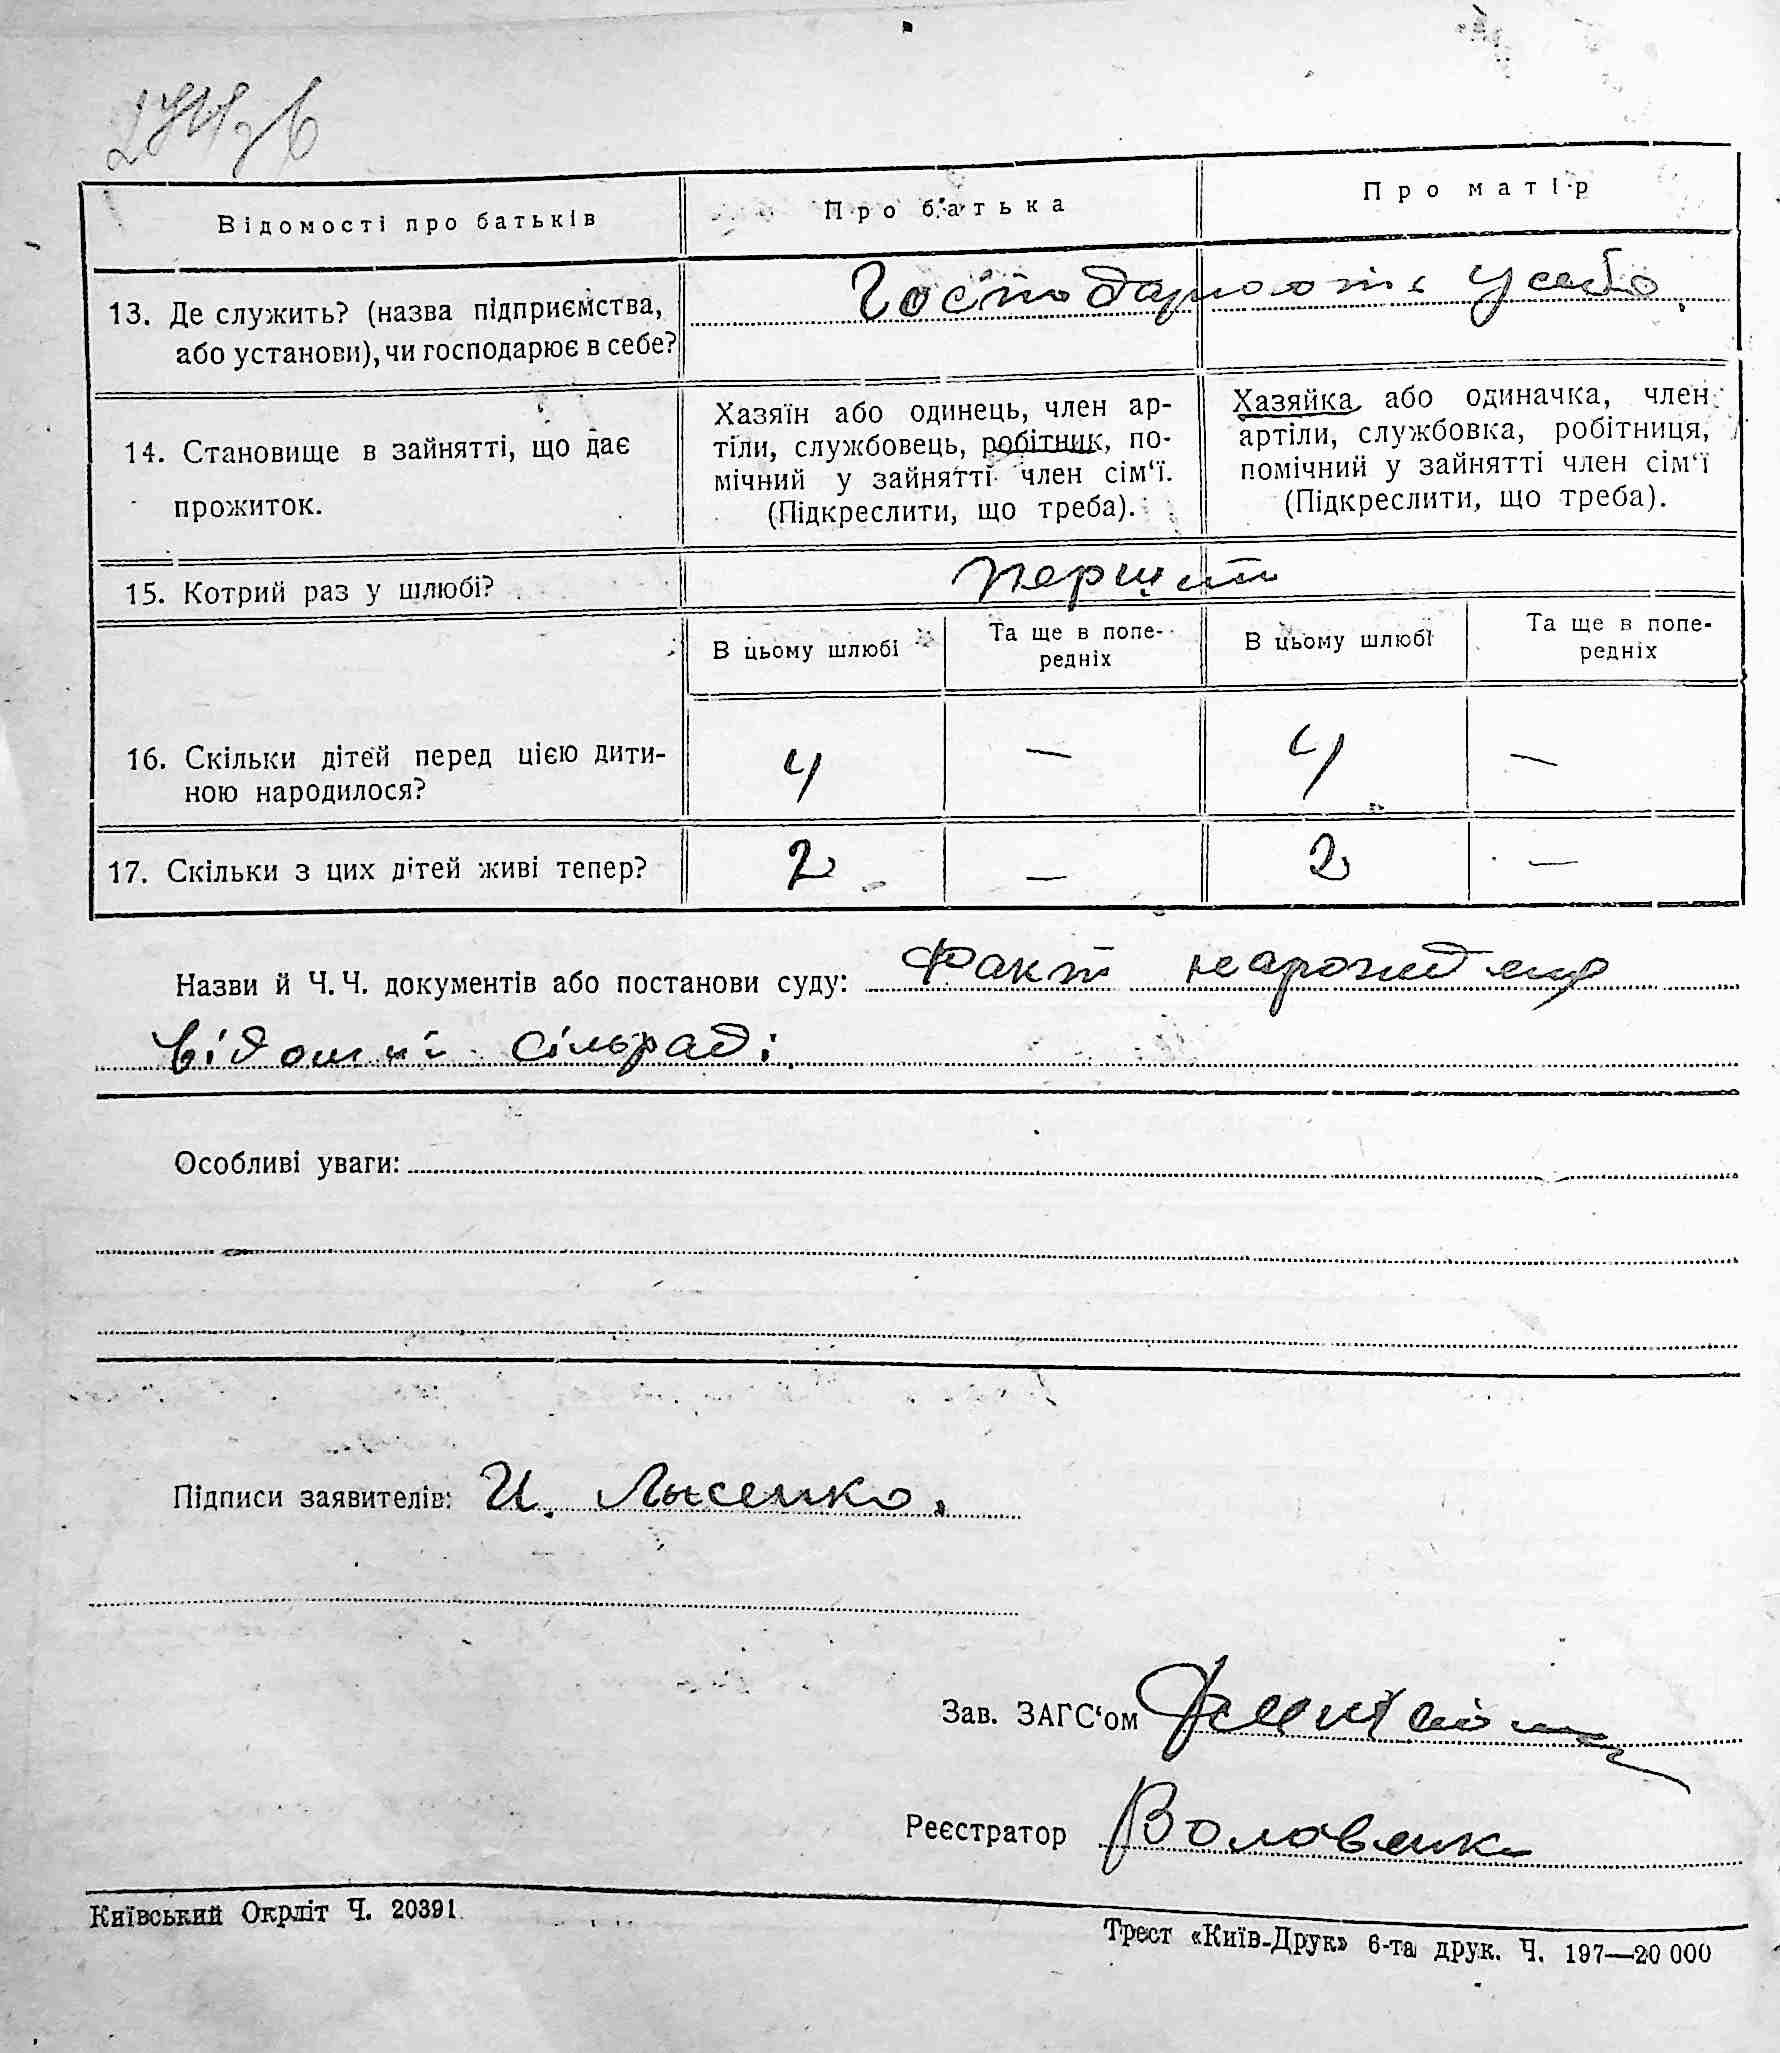 Відомості про батьків
Про батька
Про матір
13. Де служить? (назва підприємства,
або установи), чи господарює в себе?
Господарюють у себе.
14. Становище в зайнятті, що дає
прожиток.
Хазяїн або одинець, член ар-
тіли, службовець, робітник, по-
мічний у зайнятті член сім‘ї.
(Підкреслити, що треба).
Хазяйка або одиначка, член
артіли, службовка, робітниця,
помічний у зайнятті член сім‘ї
(Підкреслити, що треба).
15. Котрий раз у шлюбі?
В цьому шлюбі
Та ще в попе-
редніх
В цьому шлюбі
Та ще в попе-
редніх
16. Скільки дітей перед цією дити-
ною народилося?
4 — 4 —
17. Скільки з цих дітей живі тепер?
2 — 2 —
Назви й Ч. Ч. документів або постанови суду: Факт
сільраді
Особливі уваги:
Підписи заявителів: И. Лысенко.
Зав. ЗАГС‘ом
Реєстратор
Київський Окрліт Ч. 20391
Трест «Київ-Друк» 6-та друк. Ч. 197—20 000